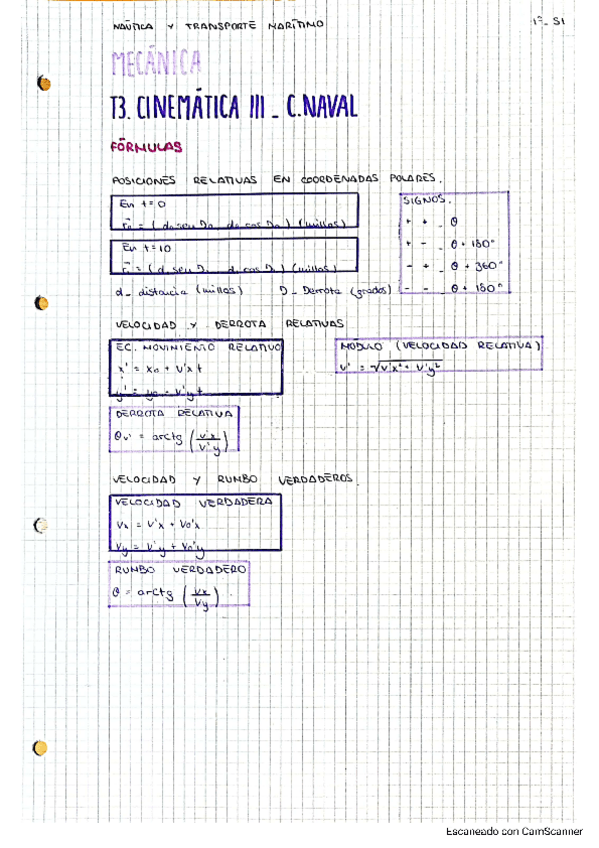 NÁUTICA Y TRANSPORTE MARÍTIMO
1º_ S1
MECÁNICA
T3. CINEMÁTICA III _ C.NAVAL
FÓRMULAS
POSICIONES RELATIVAS EN COORDENADAS POLARES.
En t=0
(millas)
En t=10
(millas)
d_ distancia (millas) D_ Derrota (grados)
SIGNOS.
+ + _ θ
+ - _ θ + 180°
- + _ θ + 360°
- - _ θ + 180°
VELOCIDAD Y DERROTA RELATIVAS
EC. MOVIMIENTO RELATIVO
x' = x₀ + v'x t
y' = y₀ = v'y t
MÓDULO (VELOCIDAD RELATIVA)
v' = √v'x² + v'y²
DERROTA RELATIVA
θv' = arctg (v'x / v'y)
VELOCIDAD Y RUMBO VERDADEROS.
VELOCIDAD VERDADERA
Vx = V'x + Vo'x
Vy = V'y + Vo'y
RUMBO VERDADERO
θ = arctg (Vx / Vy).
Escaneado con CamScanner